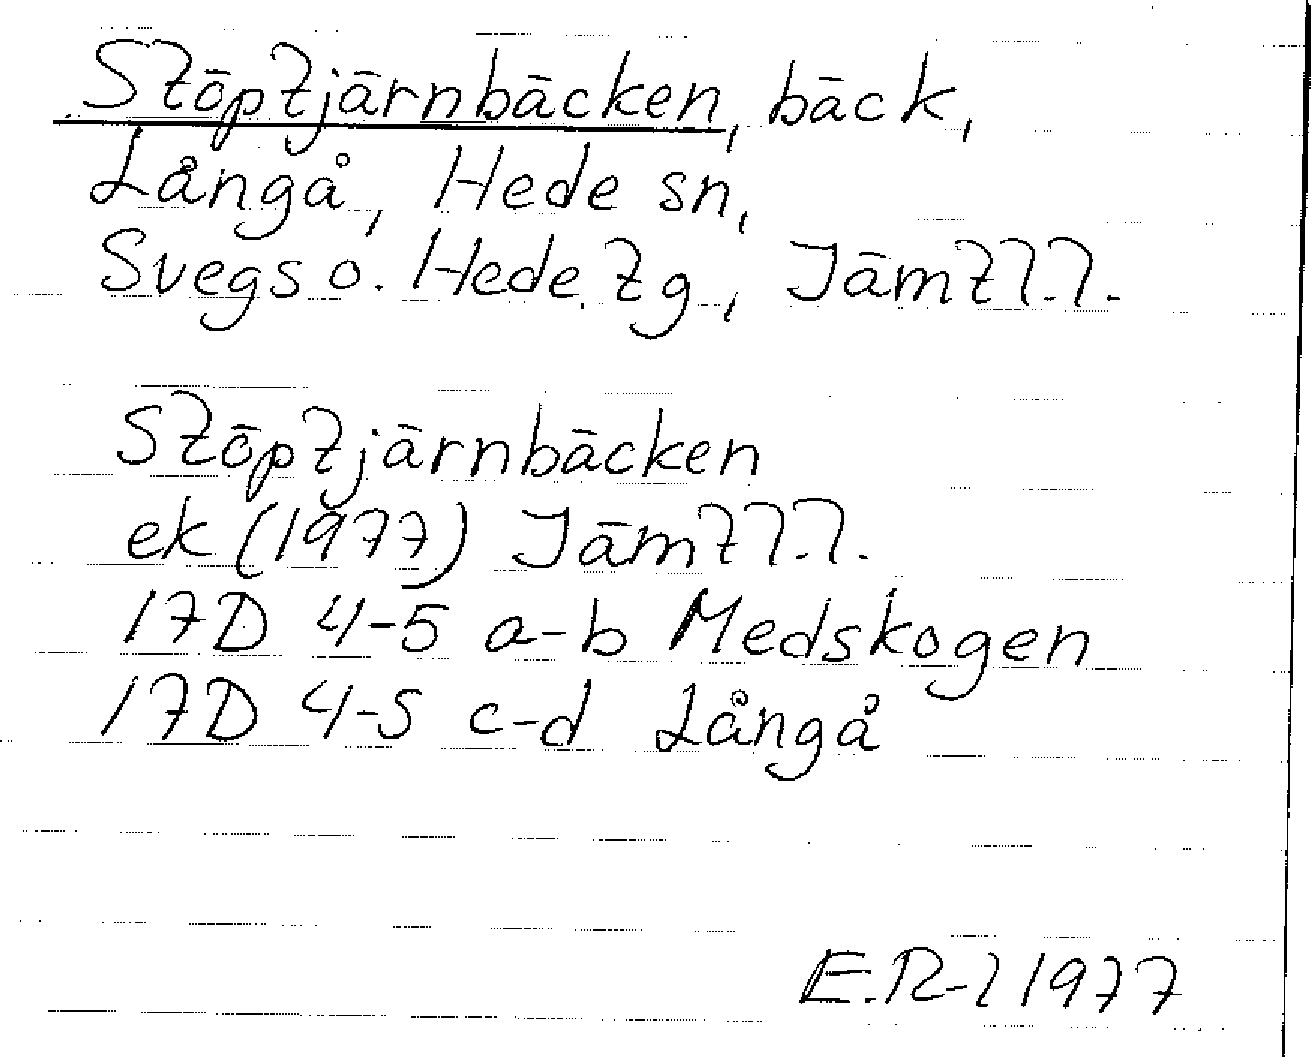 Stöptjärnbäcken, bäck,
Långå, Hede sn,
Svegs o. Hede tg, Jämtl.l.
Stöptjärnbäcken
ek (1977) Jämtl.l.
17D 4-5 a-b Medskogen
17D 4-5 c-d Långå
E.R-l 1977